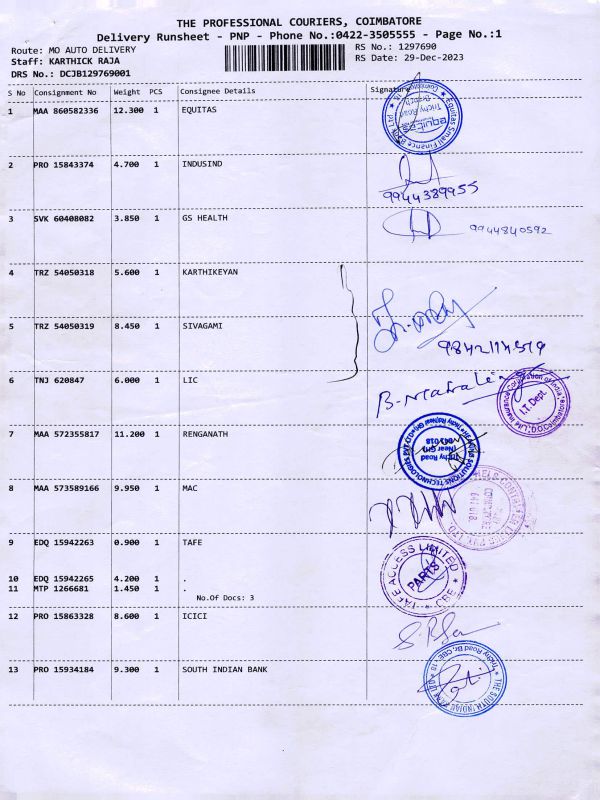 THE PROFESSIONAL COURIERS, COIMBATORE
Delivery Runsheet - PNP - Phone No.:0422-3505555 - Page No.:1
Route: MO AUTO DELIVERY
RS No.: 1297690
Staff: KARTHICK RAJA
RS Date: 29-Dec-2023
DRS No.: DCJB129769001
S No Consignment No Weight PCS Consignee Details Signature
1 MAA 860582336 12.300 1 EQUITAS
Equitas Small Finance Bank Ltd
equitas
Trichy Road
Branch
2 PRO 15843374 4.700 1 INDUSIND
9944389955
3 SVK 60408082 3.850 1 GS HEALTH
9944840592
4 TRZ 54050318 5.600 1 KARTHIKEYAN
5 TRZ 54050319 8.450 1 SIVAGAMI
6 TNJ 620847 6.000 1 LIC
I.T. Dept.
7 MAA 572355817 11.200 1 RENGANATH
Trichy Road
(Near GH)
641 018
8 MAA 573589166 9.950 1 MAC
9 EDQ 15942263 0.900 1 TAFE
TAFE ACCESS LIMITED
PARTS
CBE
10 EDQ 15942265 4.200 1 .
11 MTP 1266681 1.450 1 .
No.Of Docs: 3
12 PRO 15863328 8.600 1 ICICI
13 PRO 15934184 9.300 1 SOUTH INDIAN BANK
THE SOUTH INDIAN BANK